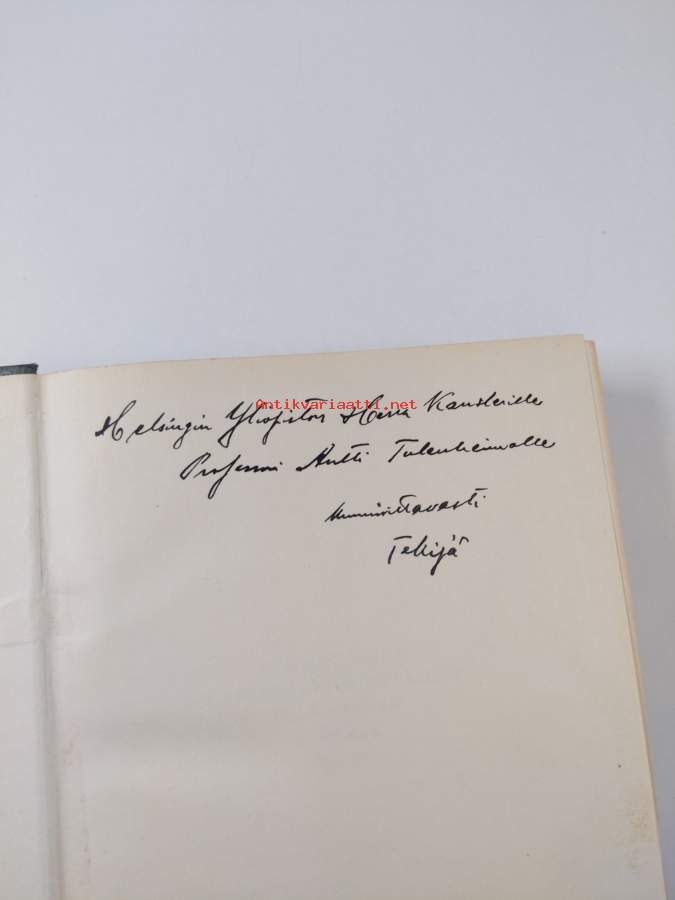 Helsingin Yliopiston Herra Kanslerille
Antikvariaatti.net
Professori Antti Tulenheimolle
kunnioittavasti
Tekijä